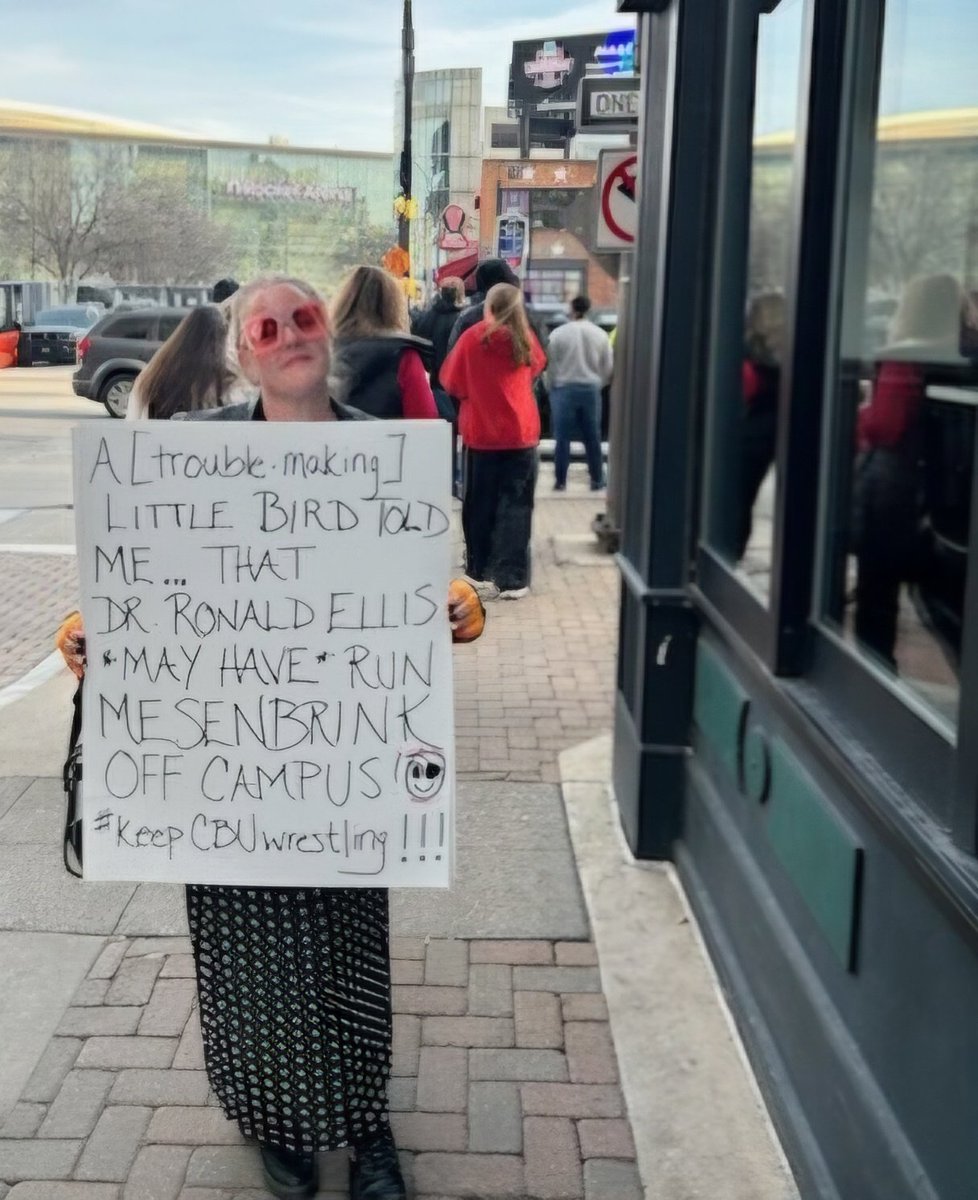 ONE
A [trouble-making]
LITTLE BIRD TOLD
ME... THAT
DR. RONALD ELLIS
*MAY HAVE* RUN
MESENBRINK
OFF CAMPUS!
#KeepCBUwrestling!!!